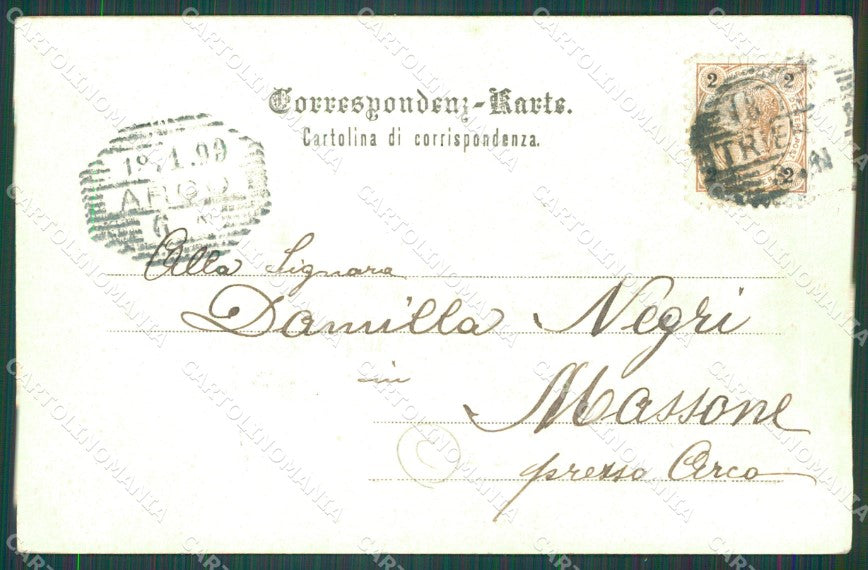 Correspondenz-Karte.
Cartolina di corrispondenza.
2 2
18
TRIE
2 2
18.1.99
ARCO
6
Alla Signora
Damilla Negri
in
Massone
presso Arco
CARTOLINOMANIA